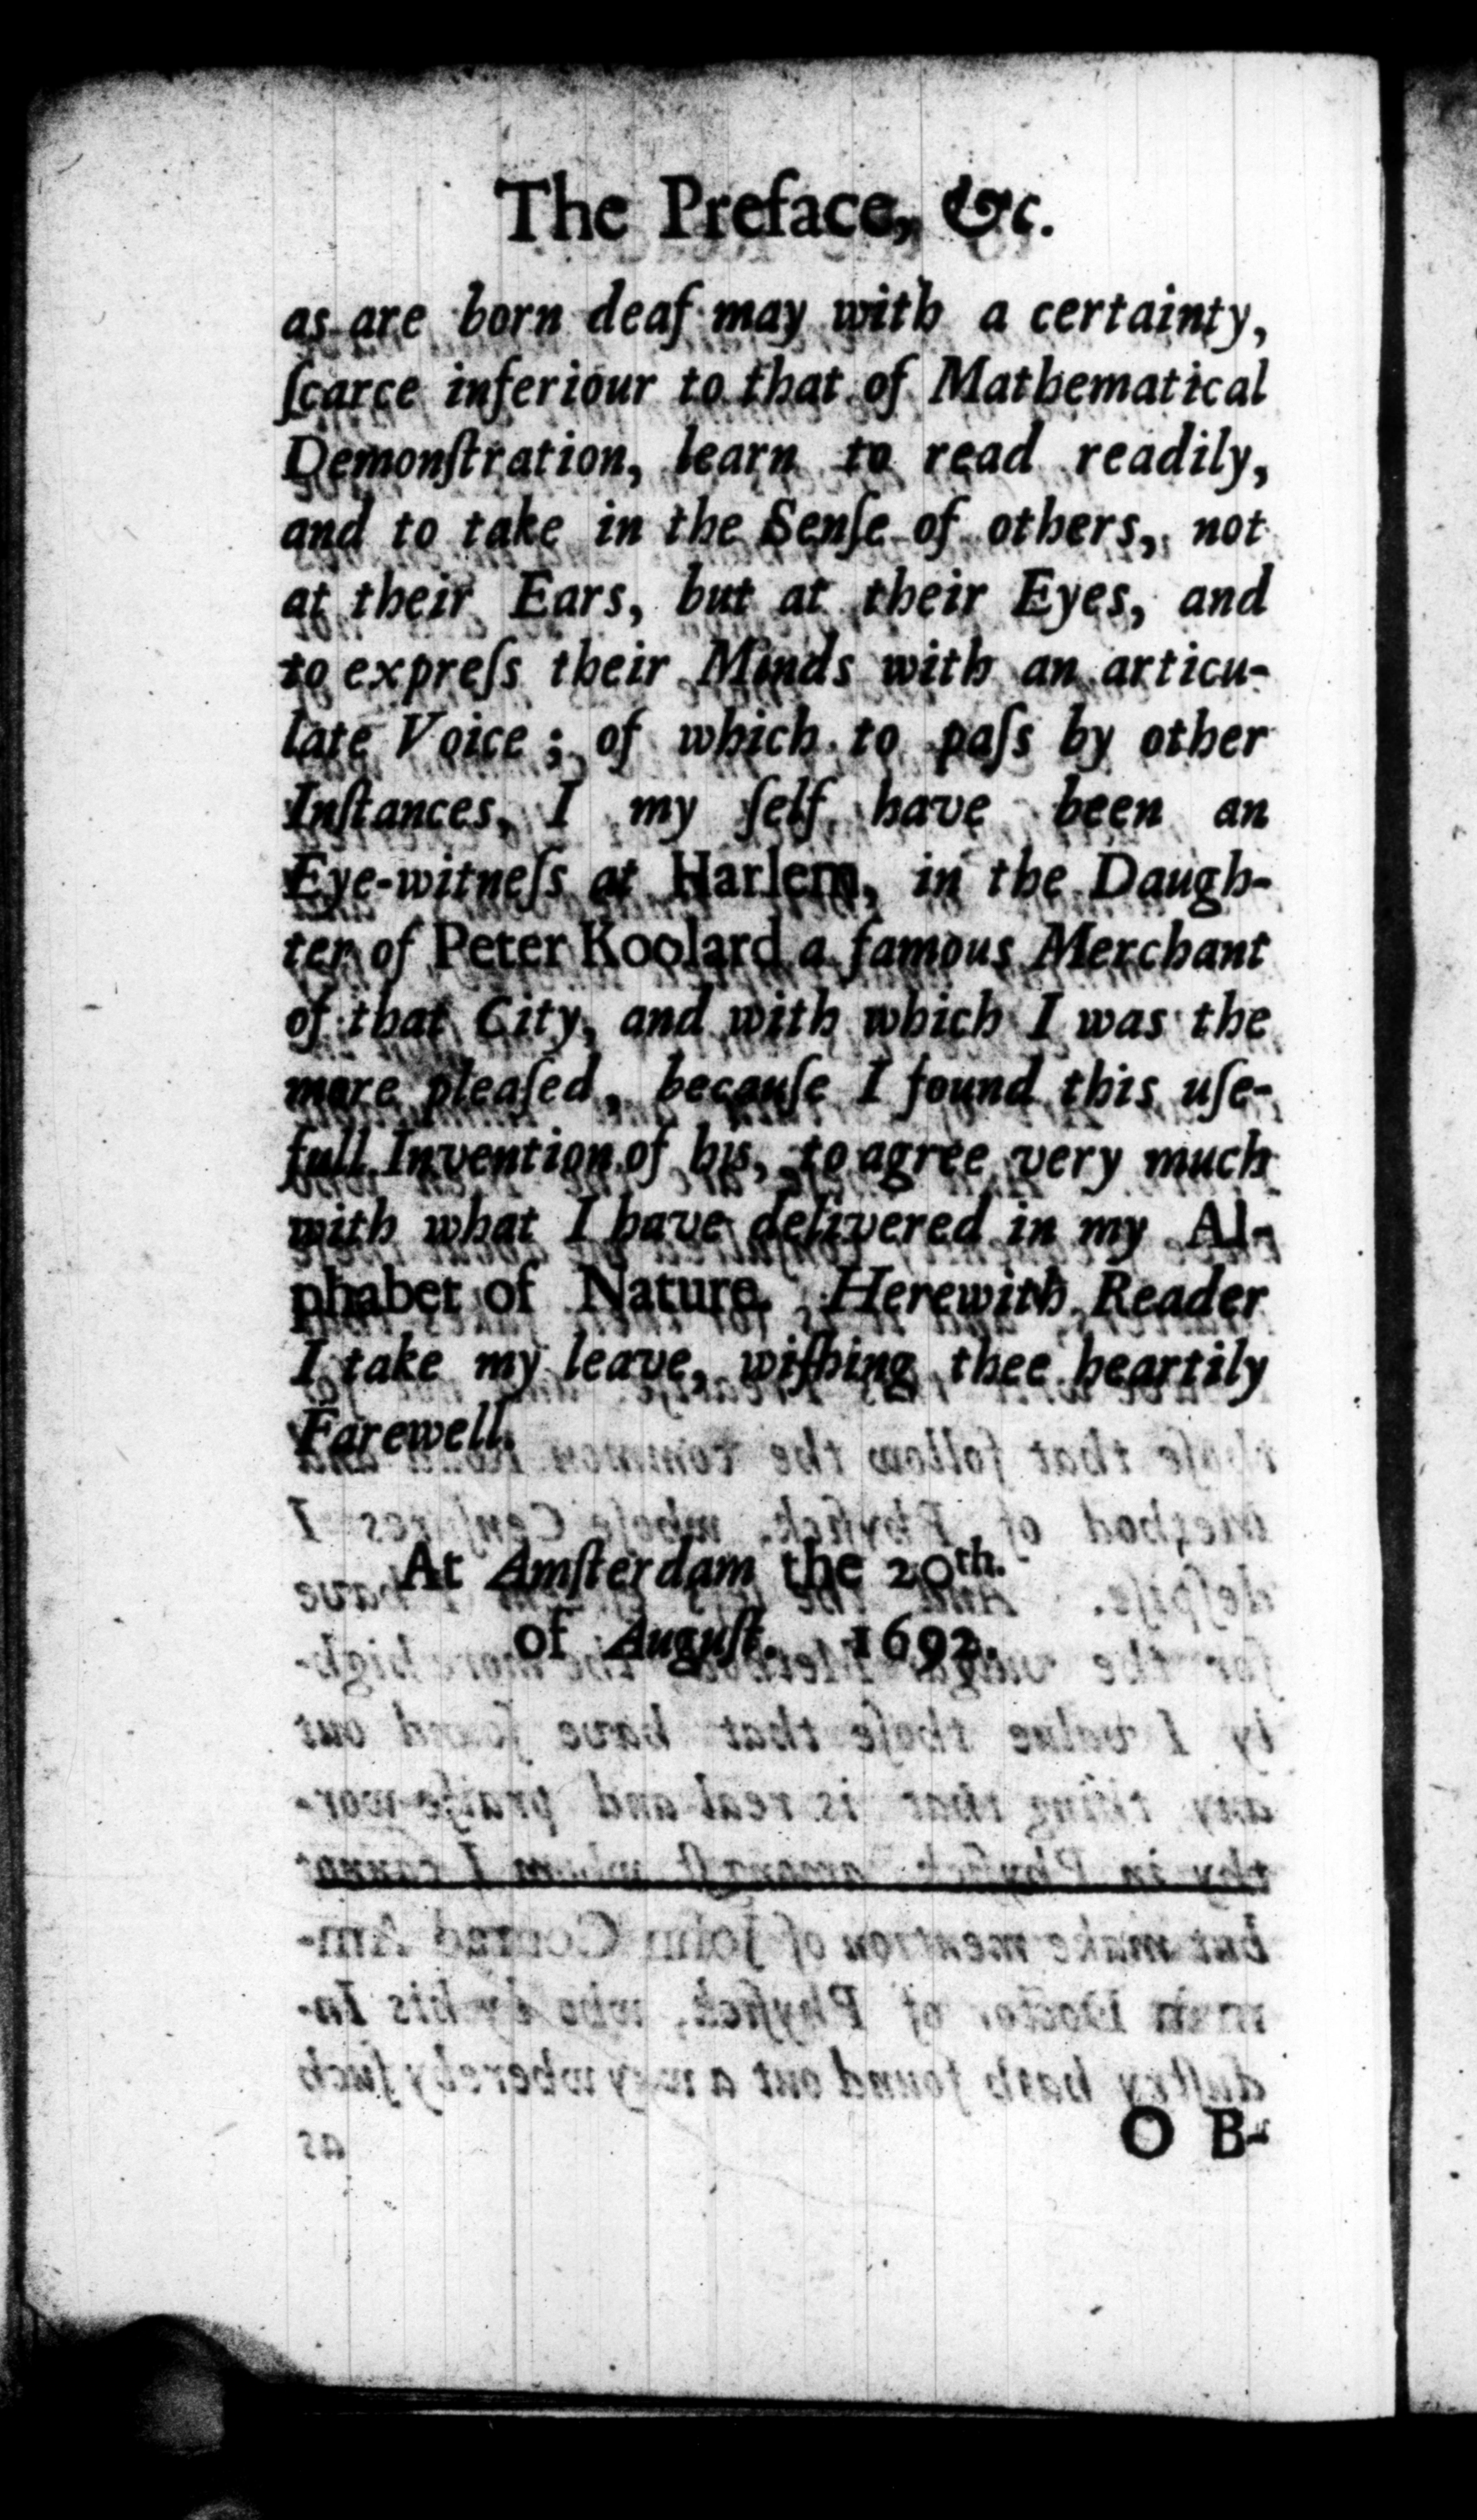 The Preface, &c.
as are born deaf may with a certainty,
ſcarce inferiour to that of Mathematical
Demonſtration, learn to read readily,
and to take in the Senſe of others, not
at their Ears, but at their Eyes, and
to expreſs their Minds with an articu-
late Voice; of which to paſs by other
Inſtances, I my ſelf have been an
Eye-witneſs at Harlem, in the Daugh-
ter of Peter Koolard a famous Merchant
of that City, and with which I was the
more pleaſed, becauſe I found this uſe-
full Invention of his, to agree very much
with what I have delivered in my Al-
phabet of Nature. Herewith Reader
I take my leave, wiſhing thee heartily
Farewell.
At Amſterdam the 20th.
of Auguſt. 1692.
O B-